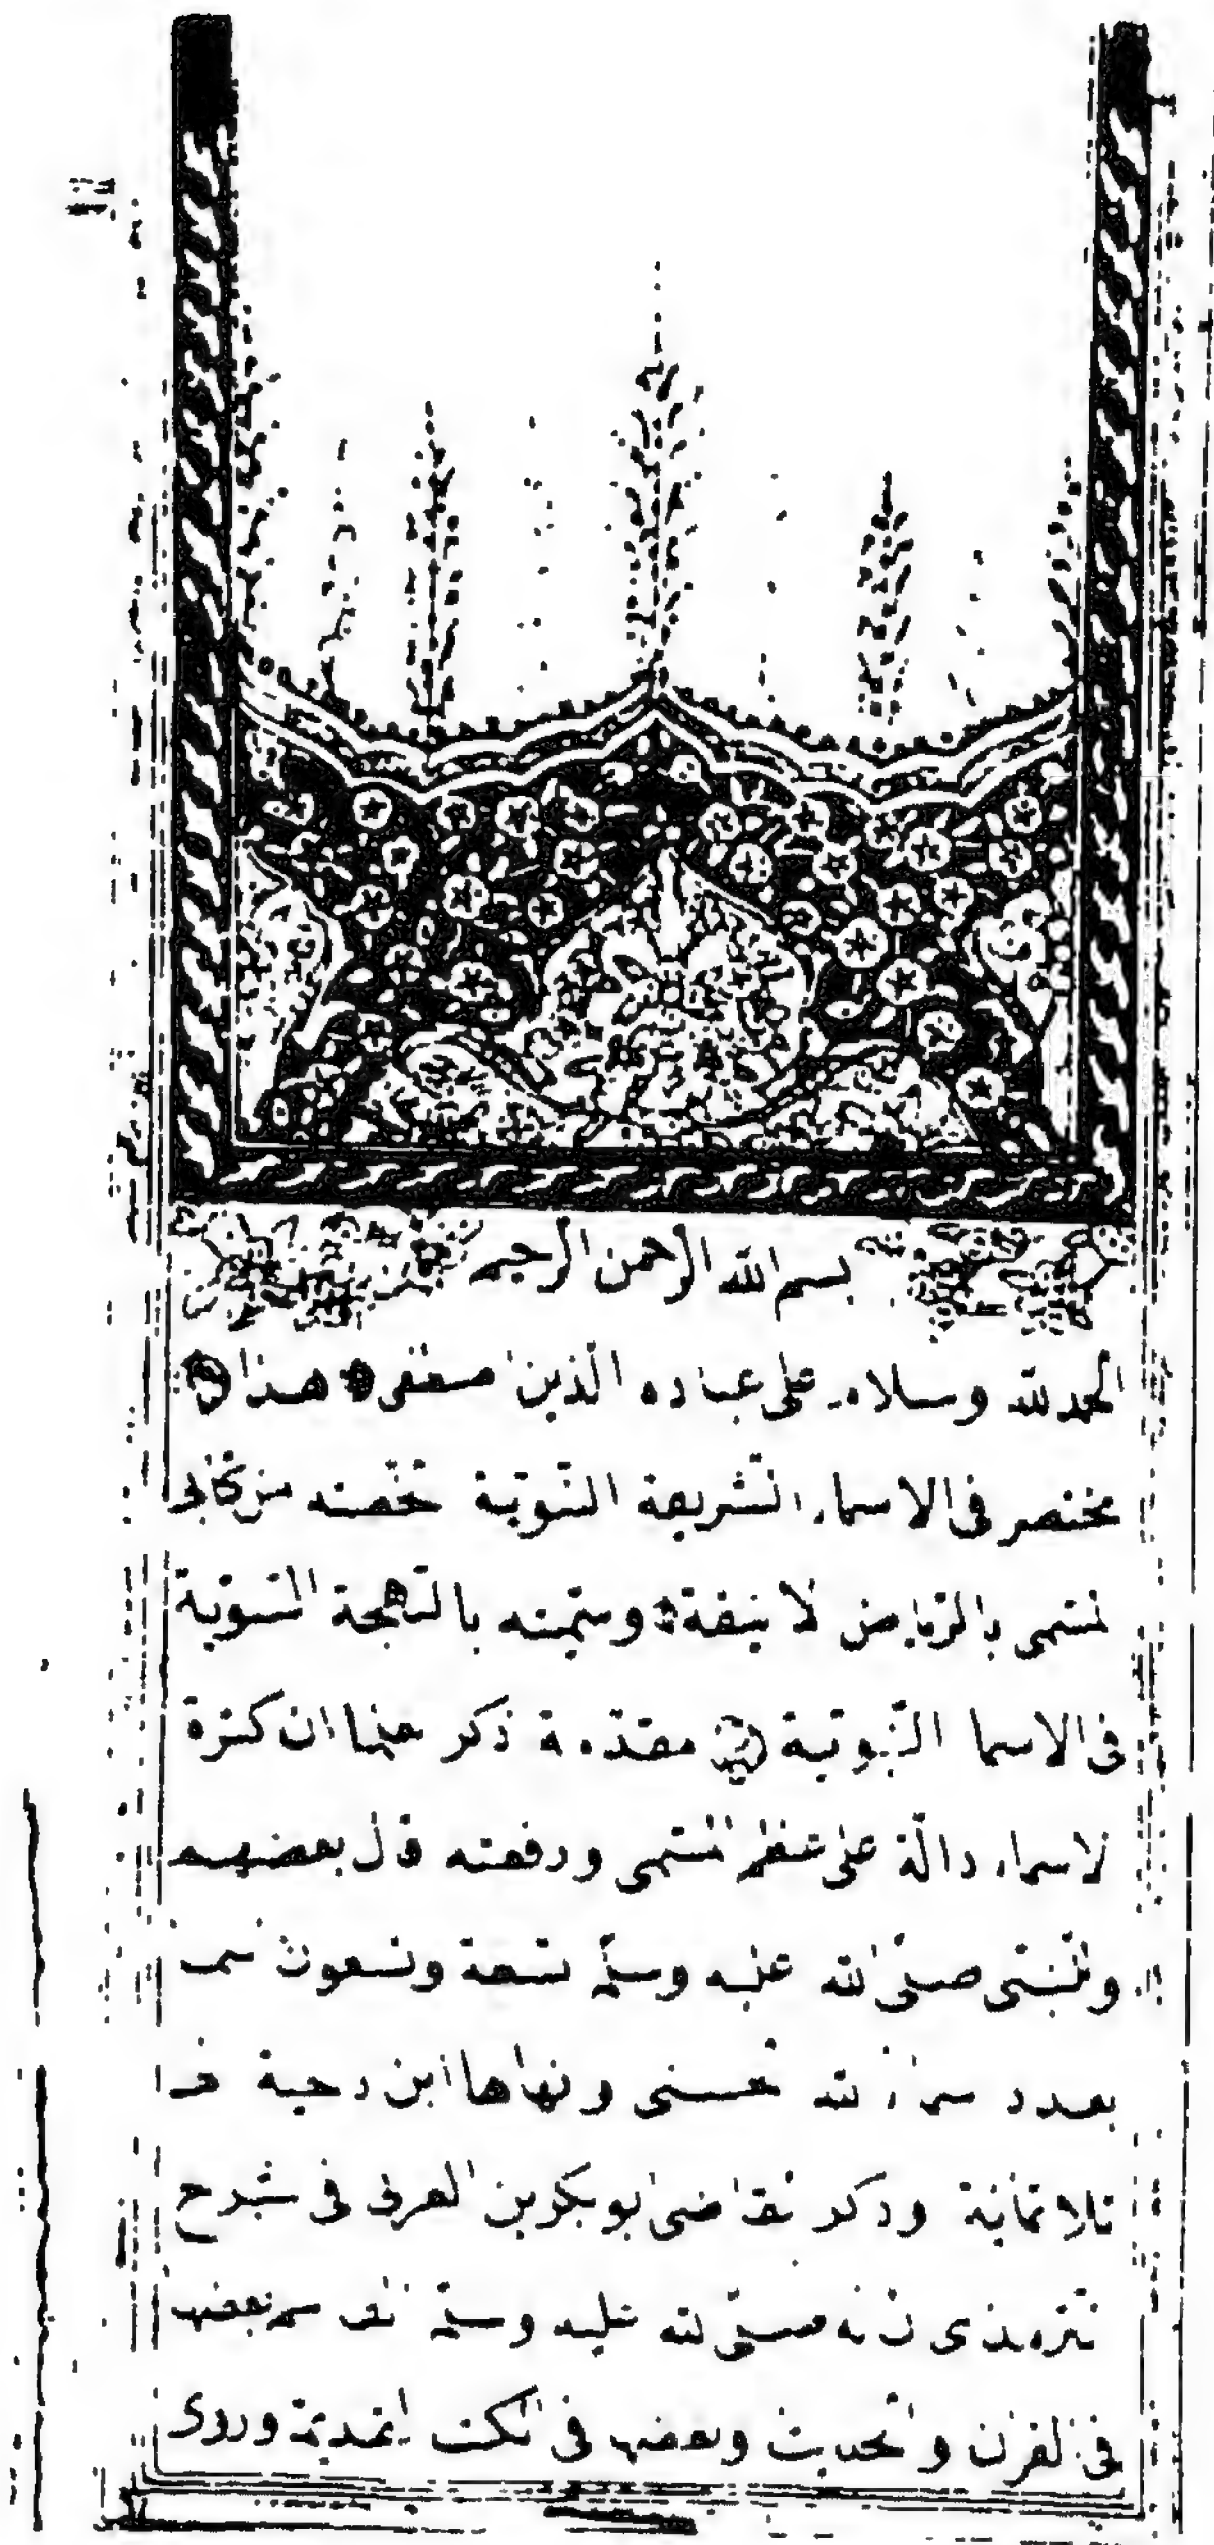 بسم الله الرحمن الرحيم
الحمد لله وسلام على عباده الذين اصطفى هذا
مختصر في الاسماء الشريفة النبوية لخصته من كتابى
المسمى بالرياض الانيقة وسميته بالبهجة السوية
فى الاسما النبوية مقدمة ذكر العلما ان كثرة
الاسماء دالة على عظم المسمى ورفعته قال بعضهم
وللنبى صلى الله عليه وسلم تسعة وتسعون اسما
بعدد اسماء الله الحسنى وانهاها ابن دحية الى
ثلاثمائة وذكر القاضى ابو بكر بن العربى فى شرح
الترمذى ان له صلى الله عليه وسلم الف اسم بعضها
فى القران والحديث وبعضها فى الكتب القديمة وروى